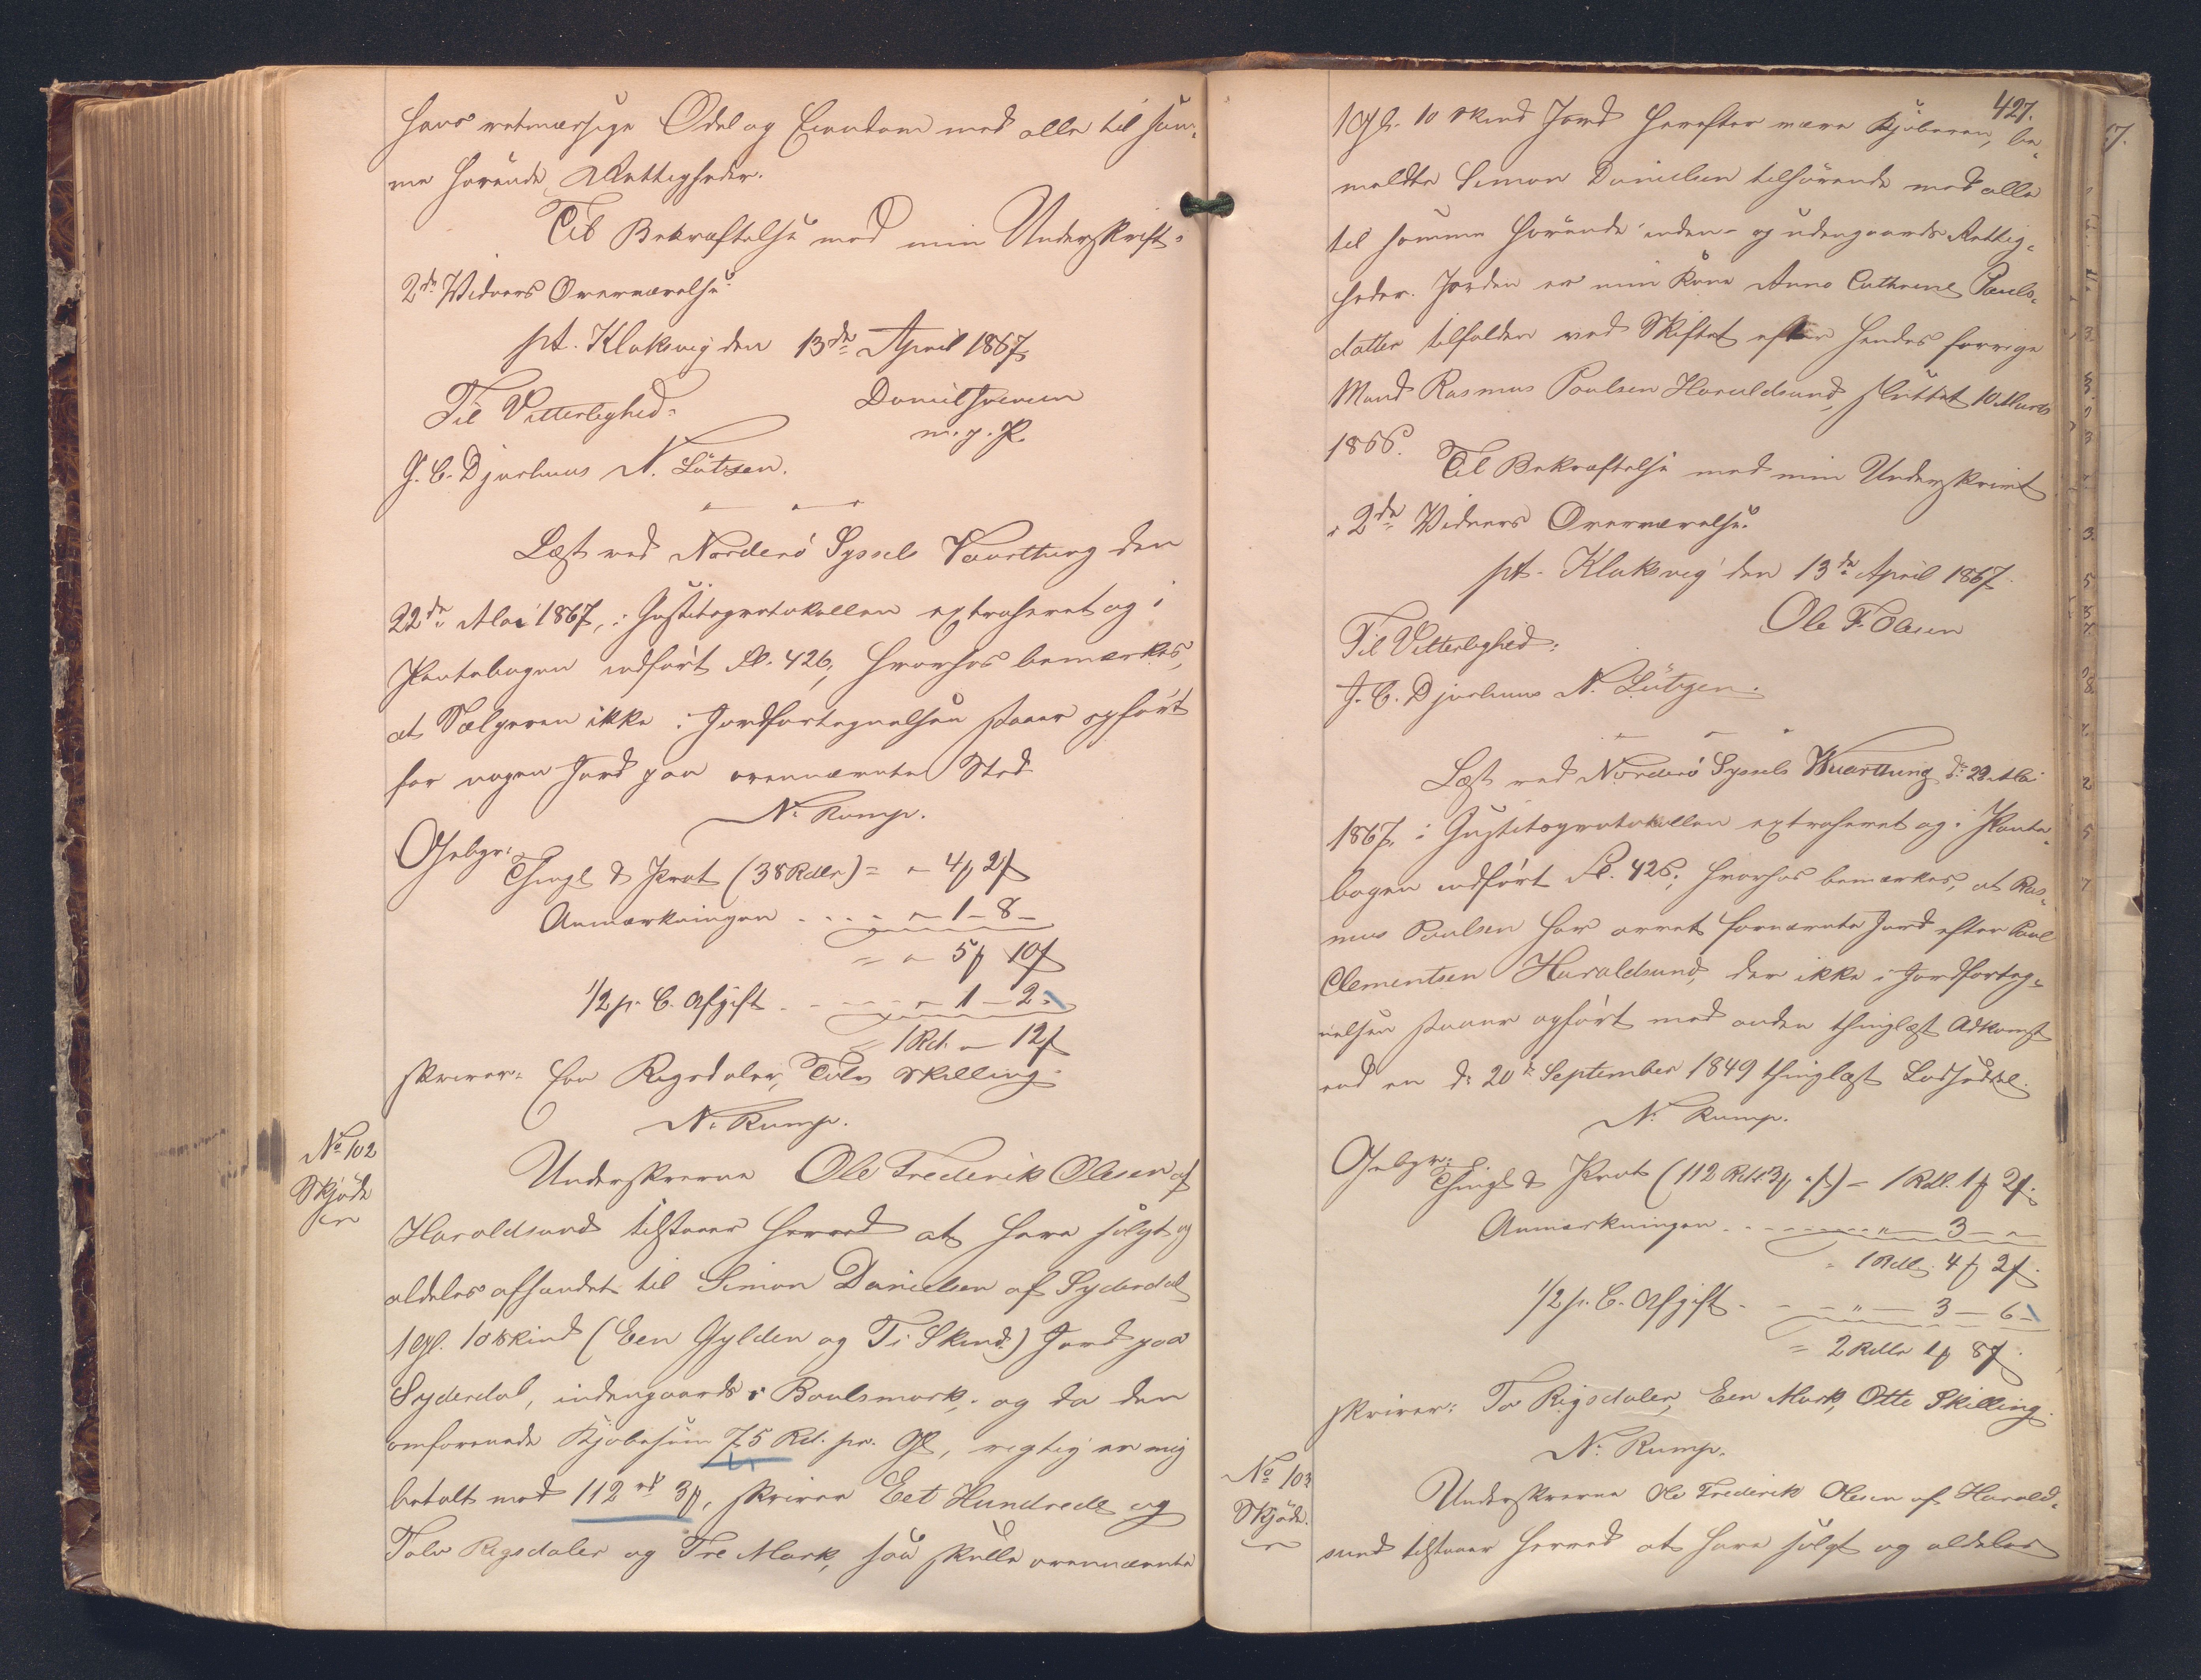 hans retmæssige Odel og Eiendom med alle til sam-
me hørende Rettigheder.
Til Bekræftelse med min Underskrift i
2de Vidners Overværelse.
pt. Klaksvig den 13de April 1867
Til Vitterlighed: Daniel Joensen
m. p. P.
J. C. Djurhuus N. Lützen.
Læst ved Norderø Syssels Vaarthing den
22de Mai 1867, i Justitsprotokollen extraheret og i
Pantebogen indført Fol. 426, hvorhos bemærkes,
at Sælgeren ikke i Jordfortegnelsen staaer opført
for nogen Jord paa ovennævnte Sted
N. Rump.
Gebyr:
Thingl & Prot (38 Rdlr) = " 4 ß 2 ß
Anmærkningen - - - - " 1 - 8 -
= " 5 ß 10 ß
1/2 p. C. Afgift - - - - " 1 - 2 -
= 1 Rd. " 12 ß
skriver: Een Rigsdaler, Tolv Skilling.
N. Rump.
No 102
Skjøde
Underskrevne Ole Frederik Olesen af
Haraldsund tilstaaer herved at have solgt og
aldeles afhændet til Simon Danielsen af Syderdal
1 Gl. 10 Skind (Een Gylden og Ti Skind) Jord paa
Syderdal, indengaards i Boulsmark, og da den
omforenede Kjøbesum 75 Rd. pr. Gl, rigtig er mig
betalt med 112 rd 3 ß, skriver Eet Hundrede og
Tolv Rigsdaler og Tre Mark, saa skulle ovennævnte
427.
1 Gl. 10 Skind Jord herefter være Kjøberen, be-
meldte Simon Danielsen tilhørende med alle
til samme hørende inden- og udengaards Rettig-
heder. Jorden er min Kone Anna Cathrine Pauls-
datter tilfalden ved Skiftet efter hendes forrige
Mand Rasmus Poulsen Haraldsund, sluttet 10 Marts
1866.
Til Bekræftelse med min Underskrivt
i 2de Vidners Overværelse.
pt. Klaksvig den 13de April 1867.
Ole F. Olesen
Til Vitterlighed:
J. C. Djurhuus N. Lützen.
Læst ved Norderø Syssels Vaarthing d: 22 Mai
1867, i Justitsprotokollen extraheret og i Pante-
bogen indført Fol. 426, hvorhos bemærkes, at Ras-
mus Poulsen har arvet fornævnte Jord efter Poul
Clementsen Haraldsund, der ikke i Jordforteg-
nelsen staaer opført med anden thinglæst Adkomst
end en d: 20de September 1849 thinglæst Lodseddel.
N. Rump.
Gebyr:
Thingl & Prot (112 Rdl 3 ß " ß) - 1 Rdl. 1 ß 2 ß.
Anmærkningen - - - - - " - 3 - " -
= 1 Rdl. 4 ß 2 ß.
1/2 p. C. Afgift - - - " - 3 - 6 -
= 2 Rdlr 1 ß 8 ß.
skriver: To Rigsdaler, Een Mark, Otte Skilling.
N. Rump.
No 103
Skjøde.
Underskrevne Ole Frederik Olesen af Harald-
sund tilstaaer herved at have solgt og aldeles